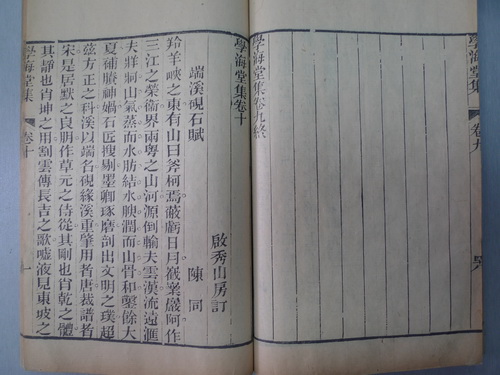 學海堂集
卷九
學海堂集卷九終
學海堂集卷十
啟秀山房訂
端溪硯石賦
陳同
羚羊峽之東有山曰斧柯焉蔽虧日月巖阿作
三江之榮衛界兩粵之山河源倒輸夫雲漢流遠滙
夫牂牁山氣蒸而水肪結水腴潤而山骨和鑿餘大
夏補賸神媧石匠搜剔墨卿琢磨剖出文明之璞超
茲方正之科溪以端名硯緣溪重肇用者唐裁譜者
宋是居默之良朋作草元之侍從其剛也肖乾之體
其靜也肖坤之用割雲傳長吉之歌噓液見東坡之
學海堂集
卷十
一